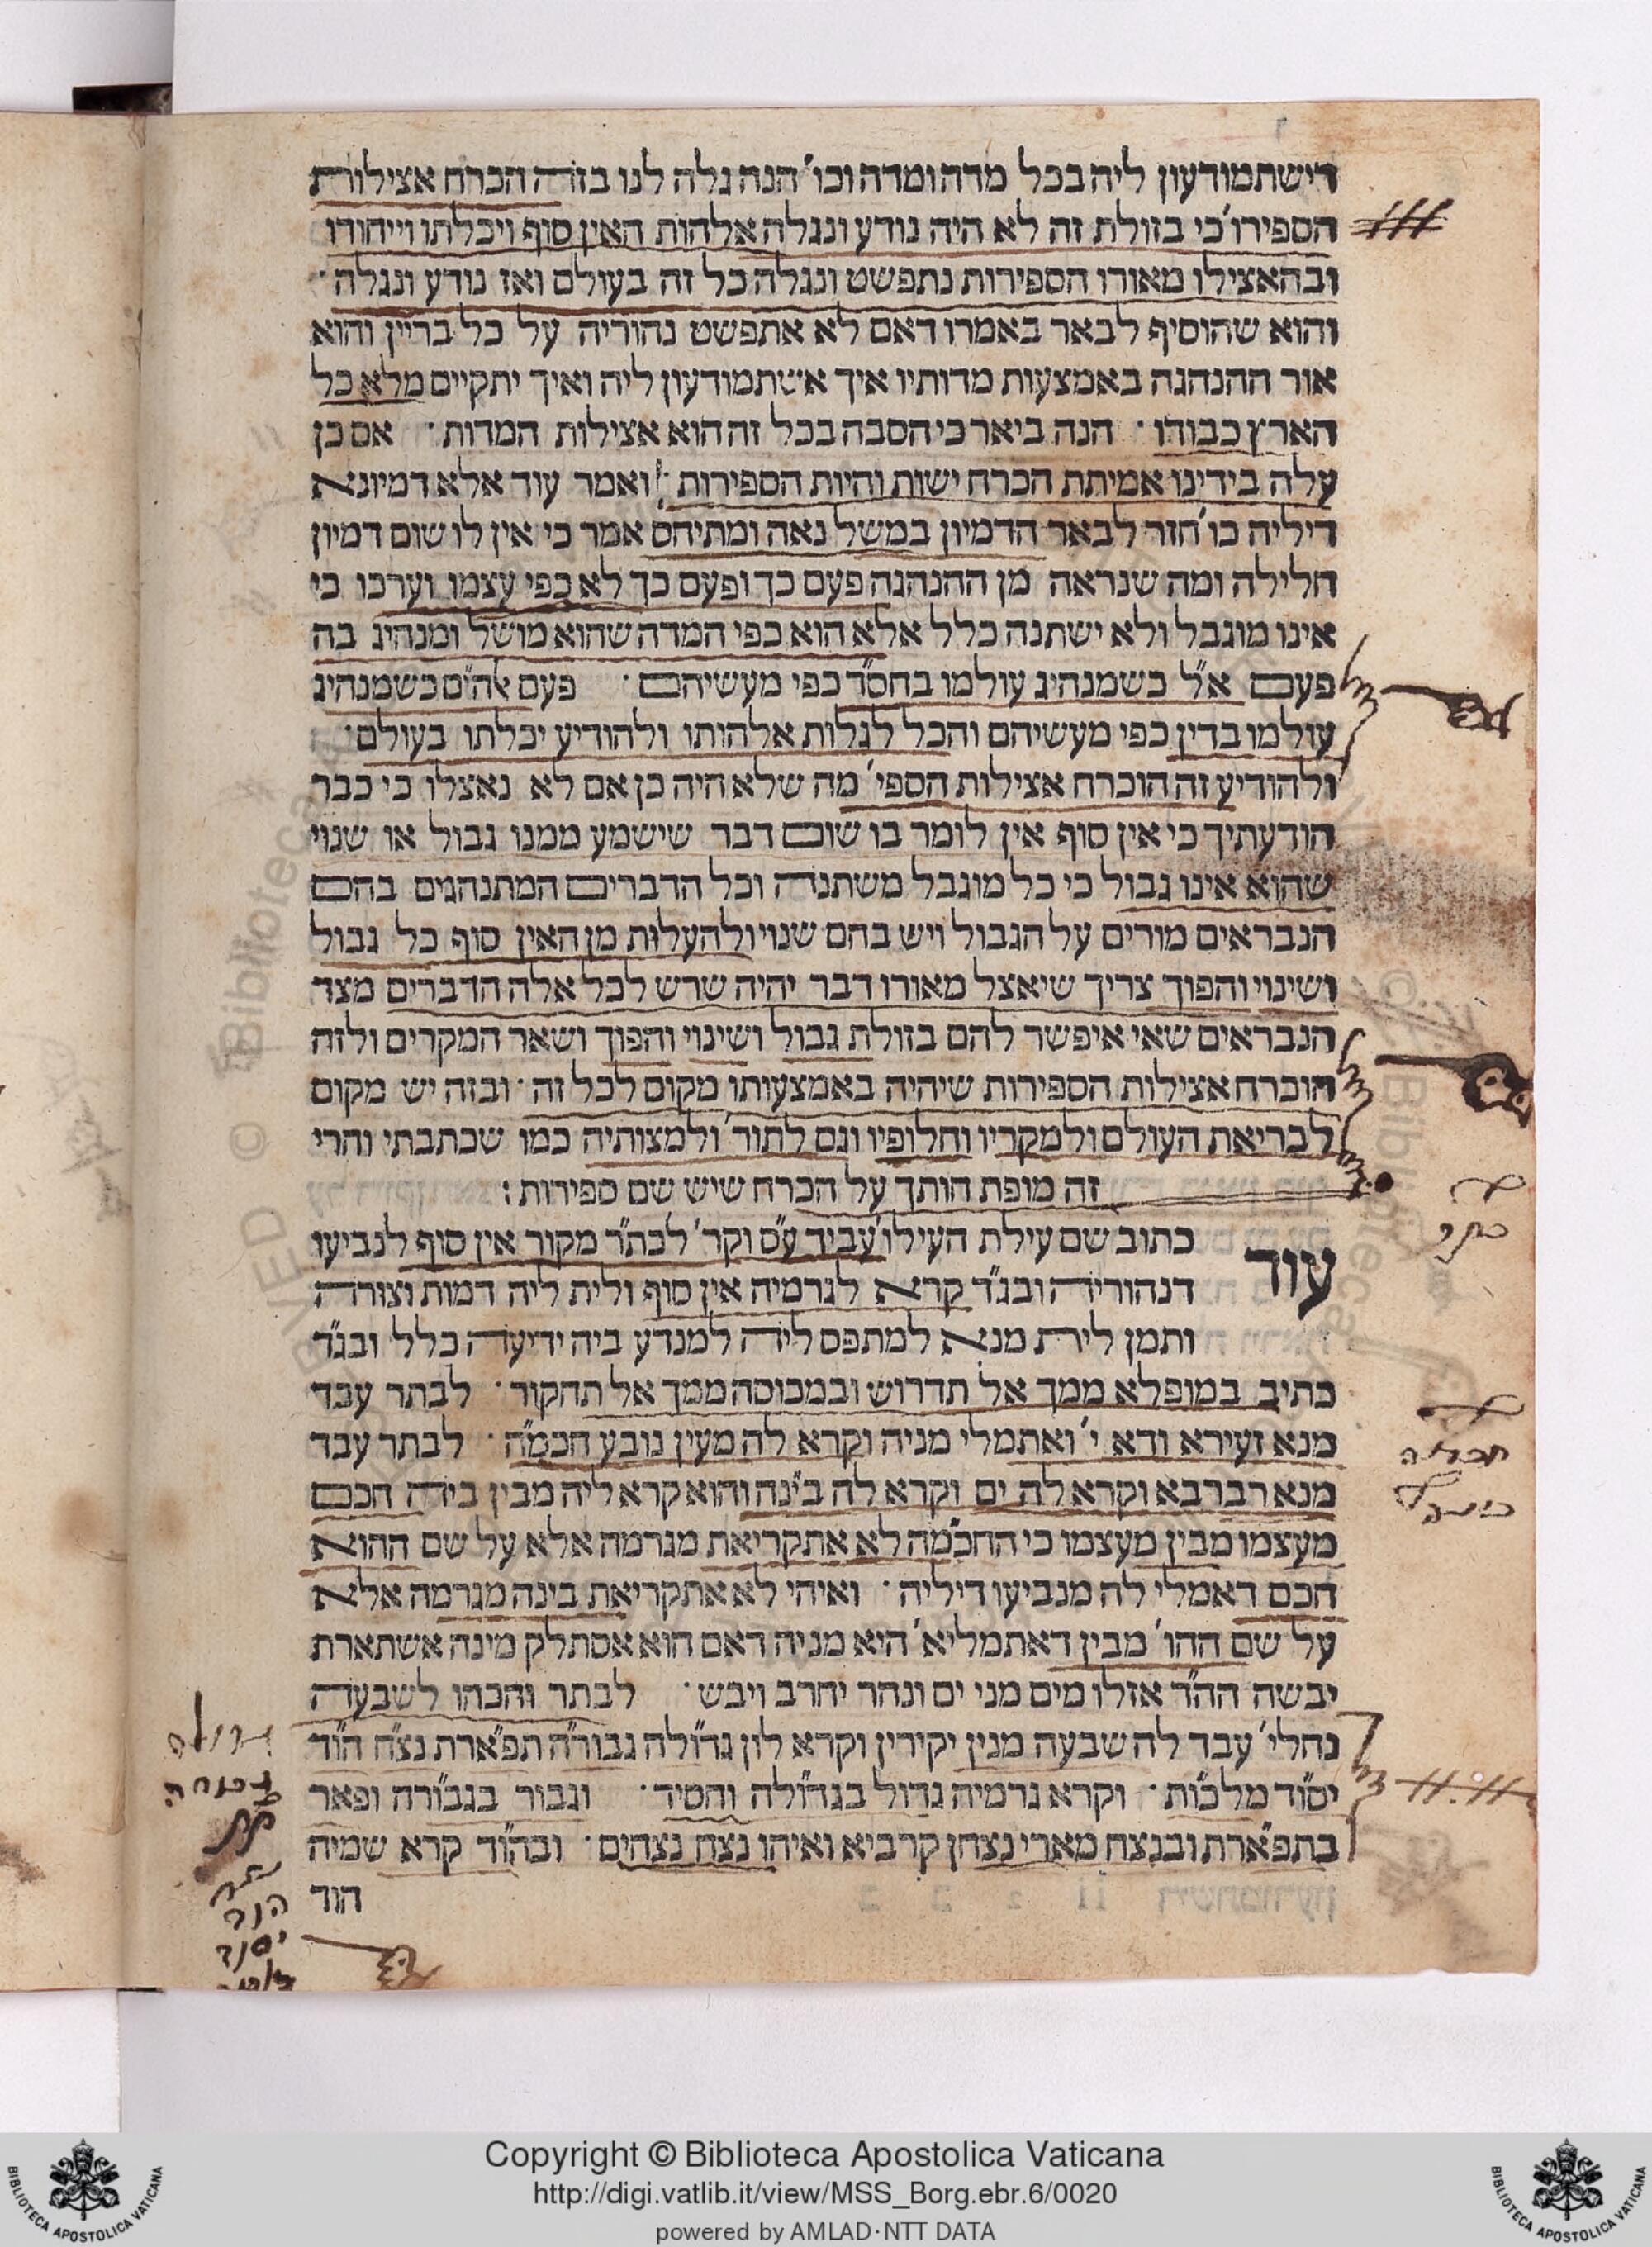 דישתמודעון ליה בכל מדה ומדה וכו' הנה גלה לנו בזה הכרח אצילות
הספירו' כי בזולת זה לא היה נודע ונגלה אלהות האין סוף ויכלתו וייחודו
ובהאצילו מאורו הספירות נתפשט ונגלה כל זה בעולם ואז נודע ונגלה·
והוא שהוסיף לבאר באמרו דאם לא אתפשט נהוריה על כל בריין והוא
אור ההנהגה באמצעות מדותיו איך אשתמודעון ליה ואיך יתקיים מלא כל
הארץ כבודו· הנה ביאר כי הסבה בכל זה הוא אצילות המדות· אם כן
עלה בידינו אמיתת הכרח ישות והיות הספירות: ואמר עוד אלא דמיונא
דיליה כו' חזר לבאר הדמיון במשל נאה ומתיחס אמר כי אין לו שום דמיון
חלילה ומה שנראה מן ההנהגה פעם כך ופעם כך לא כפי עצמו וערכו כי
אינו מוגבל ולא ישתנה כלל אלא הוא כפי המדה שהוא מושל ומנהיג בה
פעם א"ל כשמנהיג עולמו בחס"ד כפי מעשיהם· פעם אלהי"ם כשמנהיג
עולמו בדין כפי מעשיהם והכל לגלות אלהותו ולהודיע יכלתו בעולם·
ולהודיע זה הוכרח אצילות הספי' מה שלא היה כן אם לא נאצלו כי כבר
הודעתיך כי אין סוף אין לומר בו שום דבר שישמע ממנו גבול או שנוי
שהוא אינו גבול כי כל מוגבל משתנה וכל הדברים המתנהגים בהם
הנבראים מורים על הגבול ויש בהם שנוי ולהעלות מן האין סוף כל גבול
ושינוי והפוך צריך שיאצל מאורו דבר יהיה שרש לכל אלה הדברים מצד
הנבראים שאי איפשר להם בזולת גבול ושינוי והפוך ושאר המקרים ולזה
הוכרח אצילות הספירות שיהיה באמצעותו מקום לכל זה· ובזה יש מקום
לבריאת העולם ולמקריו וחלופיו וגם לתור' ולמצותיה כמו שכתבתי והרי
זה מופת חותך על הכרח שיש שם ספירות:
עוד כתוב שם עילת העילו' עביד ע"ס וקר' לכת"ר מקור אין סוף לנביעו
דנהוריה ובג"ד קרא לגרמיה אין סוף ולית ליה דמות וצורה
ותמן לית מנא למתפס ליה למנדע ביה ידיעה כלל ובג"ד
כתיב במופלא ממך אל תדרוש ובמכוסה ממך אל תחקור· לבתר עבד
מנא זעירא ודא י' ואתמלי מניה וקרא לה מעין נובע חכמ"ה· לבתר עבד
מנא רברבא וקרא לה ים וקרא לה בינ"ה והוא קרא ליה מבין ביה חכם
מעצמו מבין מעצמו כי החכמ"ה לא אתקריאת מגרמה אלא על שם ההוא
חכם דאמלי לה מנביעו דיליה· ואיהי לא אתקריאת בינה מגרמה אלא
על שם ההו' מבין דאתמליא' היא מניה דאם הוא אסתלק מינה אשתארת
יבשה הה"ד אזלו מים מני ים ונהר יחרב ויבש· לבתר והכהו לשבעה
נחלי' עבד לה שבעה מנין יקירין וקרא לון גדול"ה גבור"ה תפאר"ת נצ"ח הו"ד
יסו"ד מלכו"ת· וקרא גרמיה גדול בגדול"ה וחסיד· וגבור בגבור"ה ופאר
בתפאר"ת ובנצח מארי נצחן קרביא ואיהו נצח נצחים· ובהו"ד קרא שמיה
הוד
כתר
חכמה
בינה
גדולה
גבורה
תת
נצח
הוד
יסוד
Copyright © Biblioteca Apostolica Vaticana
http://digi.vatlib.it/view/MSS_Borg.ebr.6/0020
powered by AMLAD·NTT DATA